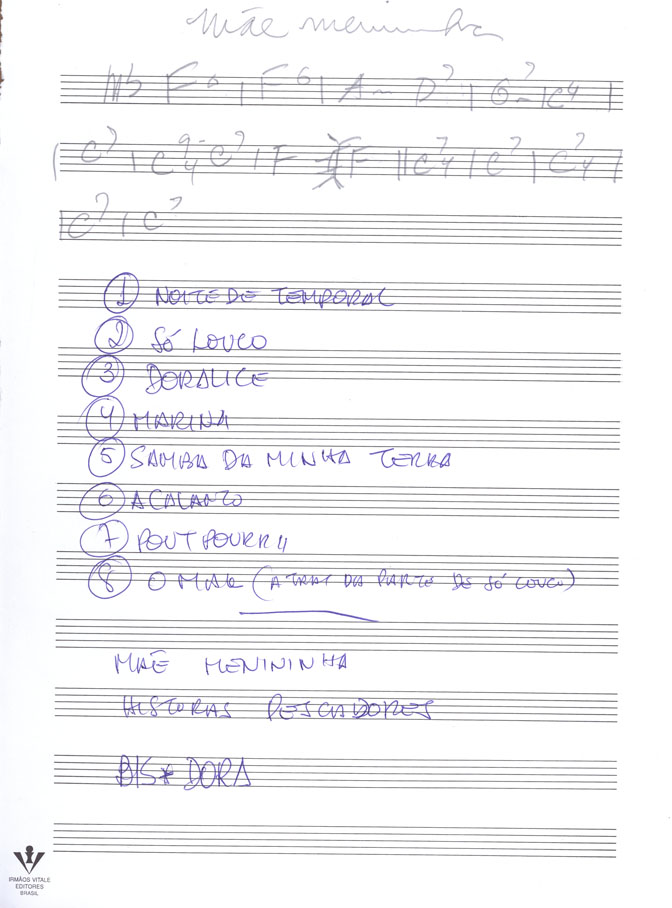 Mãe menininha
F6 | F6 | A- D7 | G7- | C4 |
C7 | C9-4 C7 | F F || C74 | C7 | C74 |
C7 | C7
1 NOITE DE TEMPORAL
2 SÓ LOUCO
3 DORALICE
4 MARINA
5 SAMBA DA MINHA TERRA
6 ACALANTO
7 POUT POURRII
8 O MAR (ATRAS DA PARTE DE SÓ LOUCO)
MAE MENININHA
HISTORIAS PESCADORES
BIS* DORA
IRMÃOS VITALE
EDITORES
BRASIL